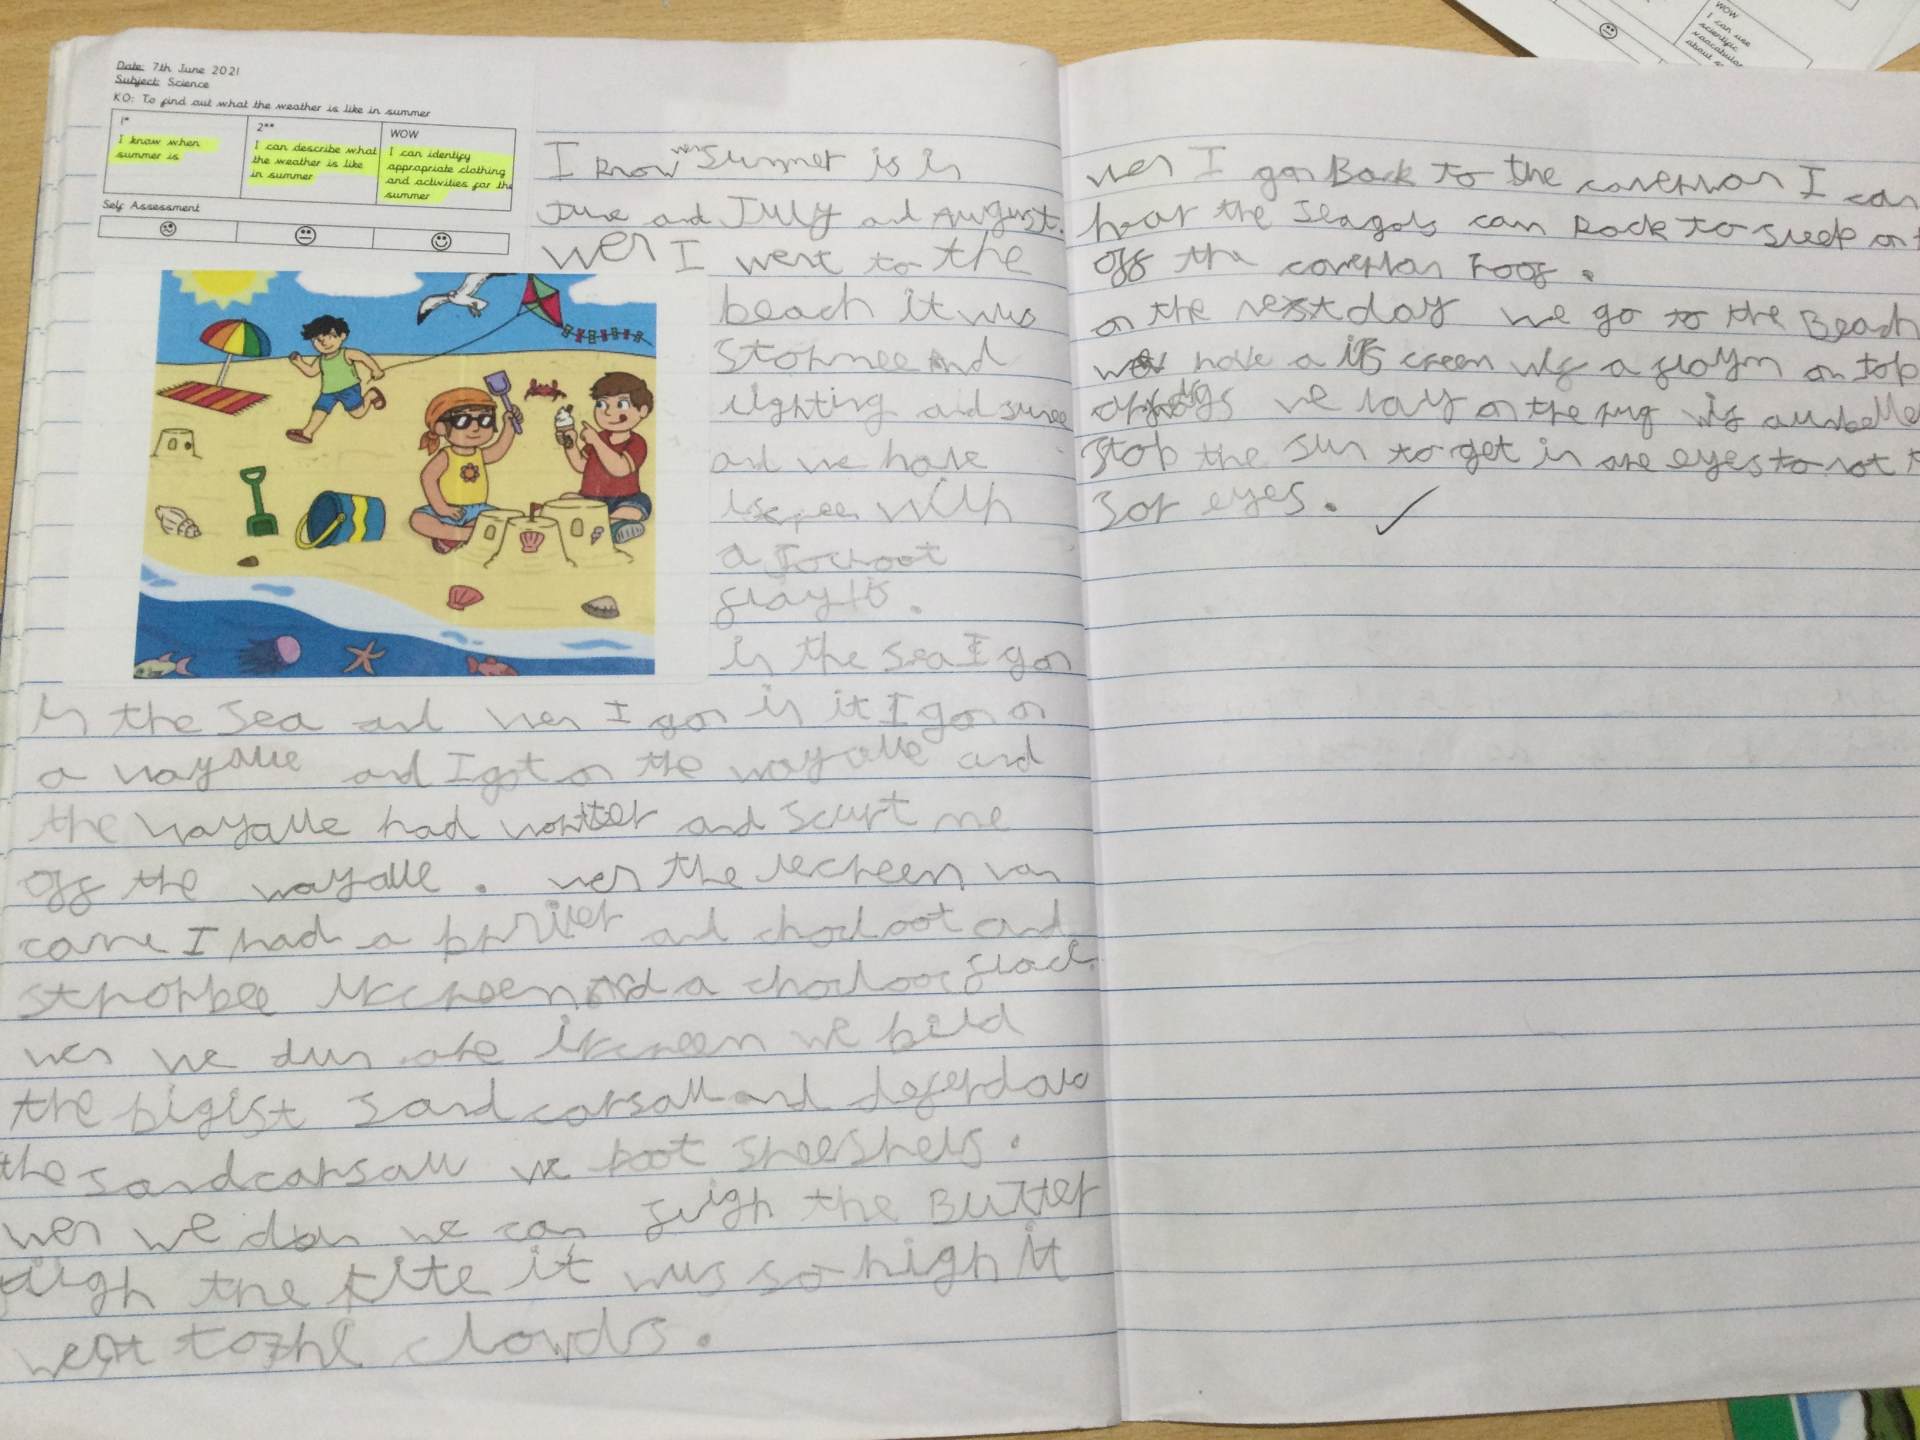 Date: 7th June 2021
Subject: Science
KO: To find out what the weather is like in summer
1*
I know when
summer is
2**
I can describe what
the weather is like
in summer
WOW
I can identify
appropriate clothing
and activities for the
summer
Self Assessment
I know wen Summer is in
June and July and August.
wen I went to the
beach it wus
stormee and
lighting and sunee
and we have
with
a
in the sea I gon
in the sea and wen I gon in it I gon on
a wayalle and I got on the wayalle and
the wayalle had wortter and scurt me
off the wayalle. wen the iecreen van
came I had a and chocloot and
strorbee and a flack.
wen we dun are we bild
the bigist sand carsall and
the sandcarsall we poot sheeshels.
wen we don we can fligh the Butter
fligh the kite it wus so high it
went to the clowds.
wen I gon Back to the I can
hear the Seagols can Rock to sleep on
off the roof.
on the next day we go to the Beach
we have a creen wif a on top
we lay on the rug wif a
stop the sun to get in are eyes to not
sor eyes.
WOW
I can use
scientific